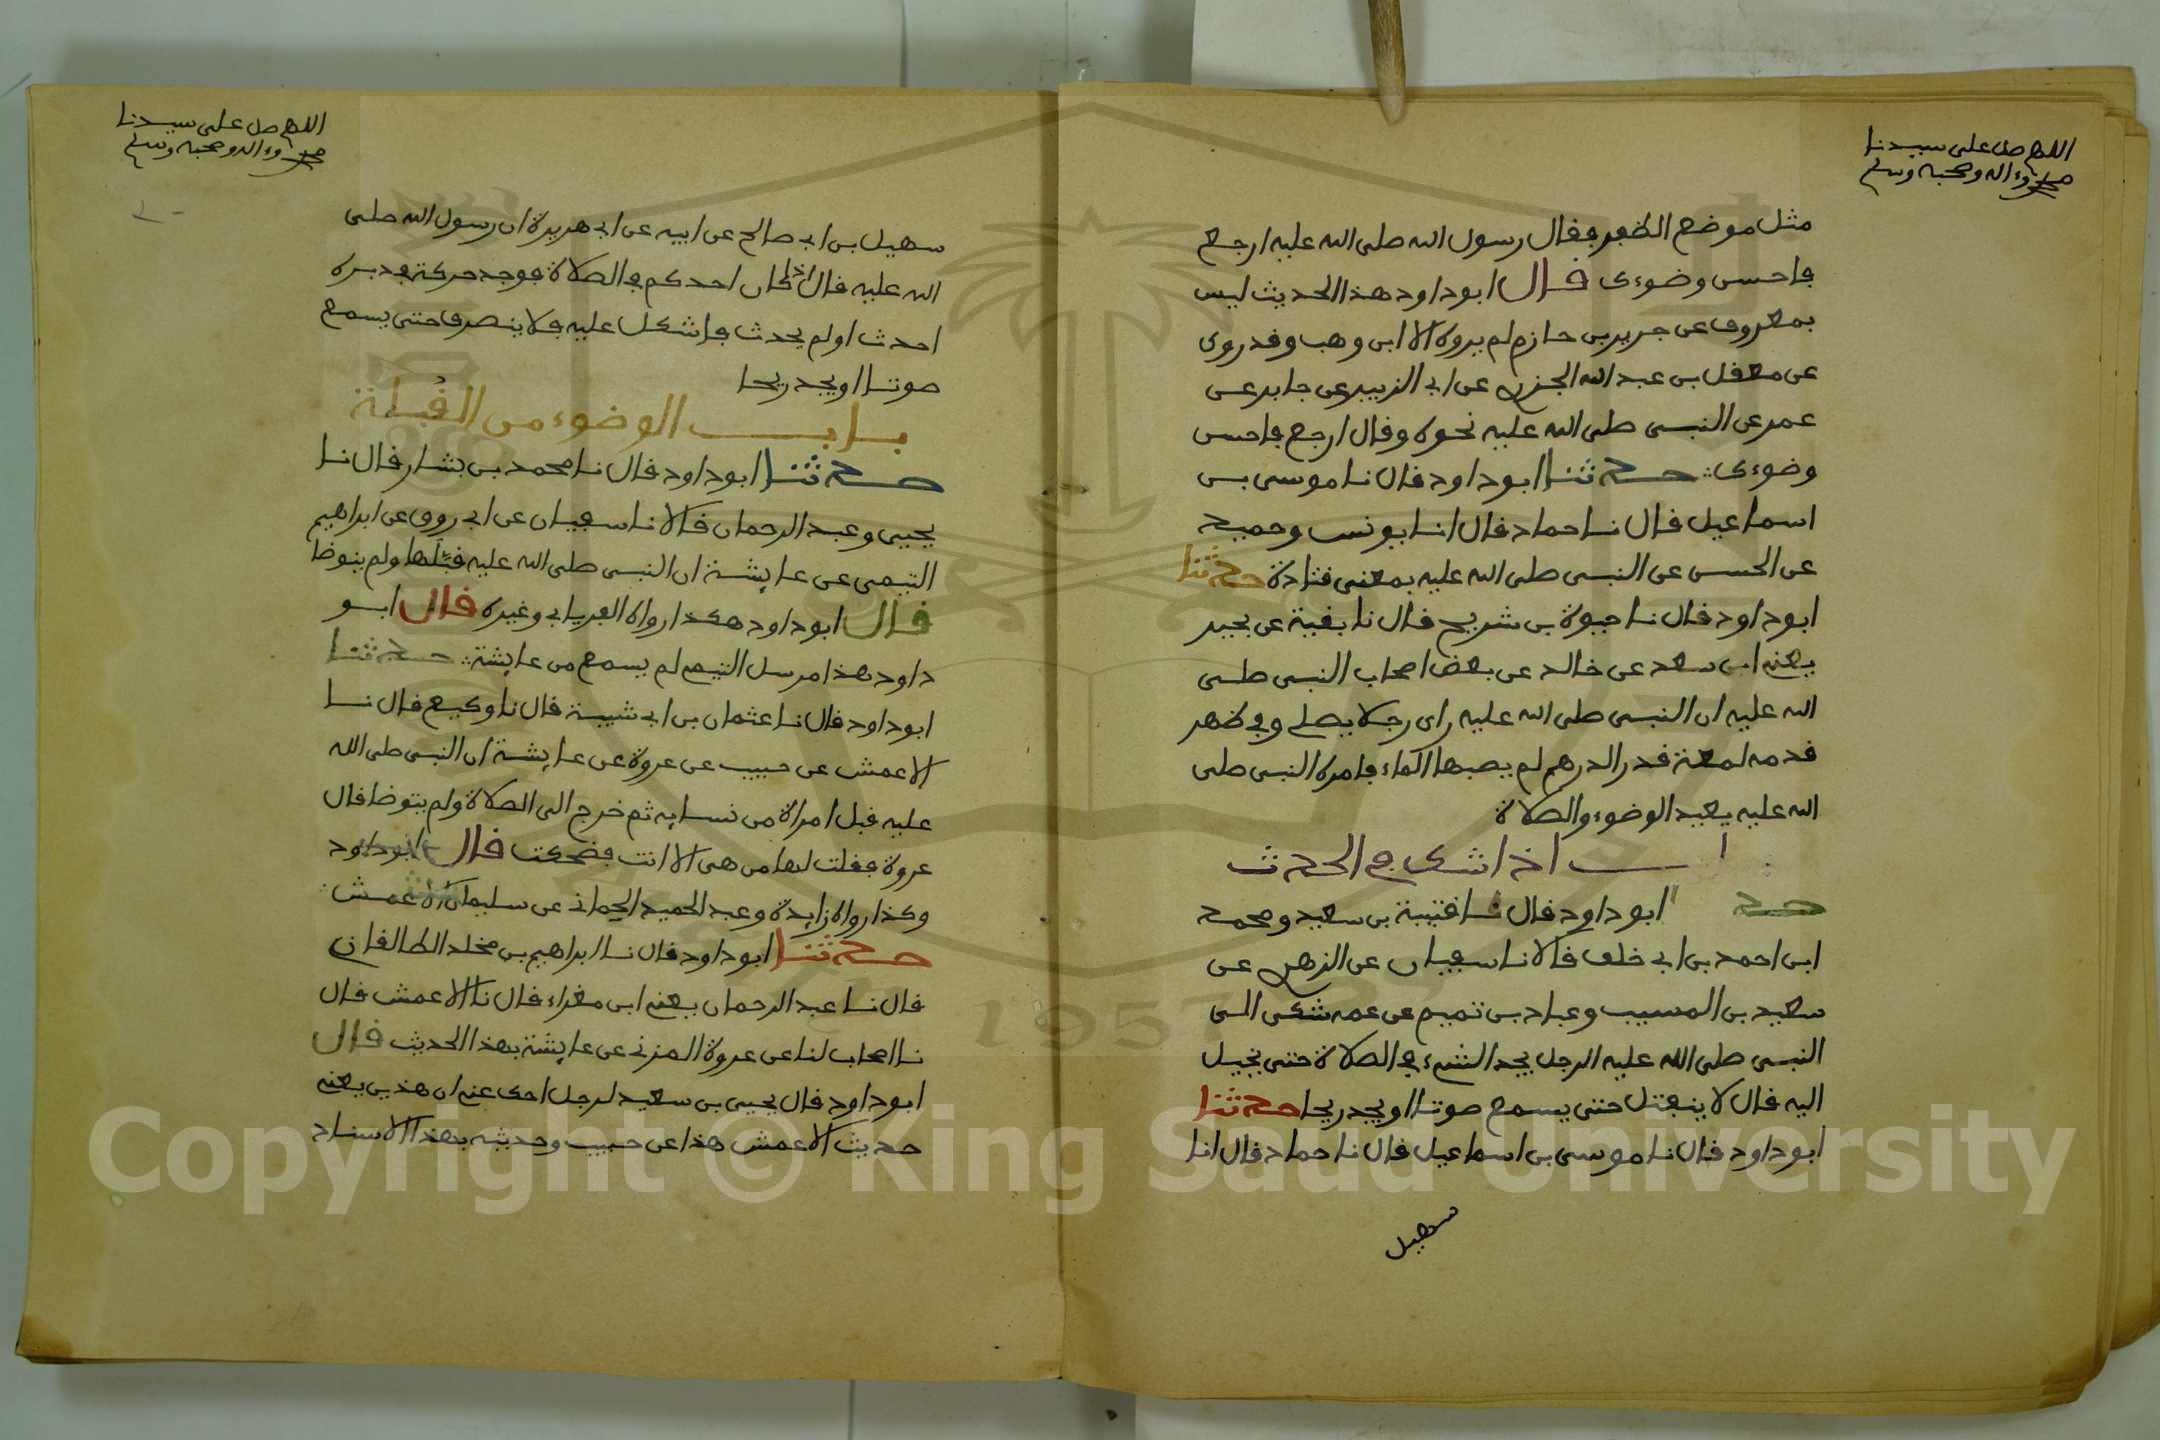 اللهم صل على سيدنا
محمد وءاله وصحبه وسلم
مثل موضع الظفر فقال رسول الله صلى الله عليه ارجع
فاحسن وضوءك قال ابو داود هذا الحديث ليس
بمعروف عن جرير بن حازم لم يروه الا ابن وهب وقد روى
عن معقل بن عبد الله الجزري عن ابي الزبير عن جابر عن
عمر عن النبي صلى الله عليه نحوه وقال ارجع فاحسن
وضوءك حدثنا ابو داود قال نا موسى بن
اسماعيل قال نا حماد قال انا يونس وحميد
عن الحسن عن النبي صلى الله عليه بمعنى قتادة حدثنا
ابو داود قال نا حيوة بن شريح قال نا بقية عن بحير
يعني ابن سعد عن خالد عن بعض اصحاب النبي صلى
الله عليه ان النبي صلى الله عليه راى رجلا يصلي وفي ظهر
قدمه لمعة قدر الدرهم لم يصبها الماء فامره النبي صلى
الله عليه يعيد الوضوء والصلاة
اذا شك في الحدث
ابو داود قال نا قتيبة بن سعيد ومحمد
ابن احمد بن ابي خلف قالا نا سفيان عن الزهري عن
سعيد بن المسيب وعباد بن تميم عن عمه شكى الى
النبي صلى الله عليه الرجل يجد الشيء في الصلاة حتى يخيل
اليه قال لا ينفتل حتى يسمع صوتا او يجد ريحا حدثنا
ابو داود قال نا موسى بن اسماعيل قال نا حماد قال انا
سهيل
اللهم صل على سيدنا
محمد وءاله وصحبه وسلم
سهيل بن ابي صالح عن ابيه عن ابي هريرة ان رسول الله صلى
الله عليه قال اذا كان احدكم في الصلاة فوجد حركة في دبره
احدث او لم يحدث فاشكل عليه فلا ينصرف حتى يسمع
صوتا او يجد ريحا
باب الوضوء من القبلة
حدثنا ابو داود قال نا محمد بن بشار قال نا
يحيى وعبد الرحمان قالا نا سفيان عن ابي روق عن ابراهيم
التيمي عن عايشة ان النبي صلى الله عليه قبلها ولم يتوضا
قال ابو داود هكذا رواه الفريابي وغيره قال ابو
داود هذا مرسل التيمي لم يسمع من عايشة حدثنا
ابو داود قال نا عثمان بن ابي شيبة قال نا وكيع قال نا
الاعمش عن حبيب عن عروة عن عايشة ان النبي صلى الله
عليه قبل امراة من نسايه ثم خرج الى الصلاة ولم يتوضا قال
عروة فقلت لها من هي الا انت فضحكت قال ابو داود
وكذا رواه زايدة وعبد الحميد الحماني عن سليمان الاعمش
حدثنا ابو داود قال نا ابراهيم بن مخلد الطالقاني
قال نا عبد الرحمان يعني ابن مغراء قال نا الاعمش قال
نا اصحاب لنا عن عروة المزني عن عايشة بهذا الحديث قال
ابو داود قال يحيى بن سعيد لرجل احك عني ان هذين يعني
حديث الاعمش هذا عن حبيب وحديثه بهذا الاسناد
1957
Copyright © King Saud University